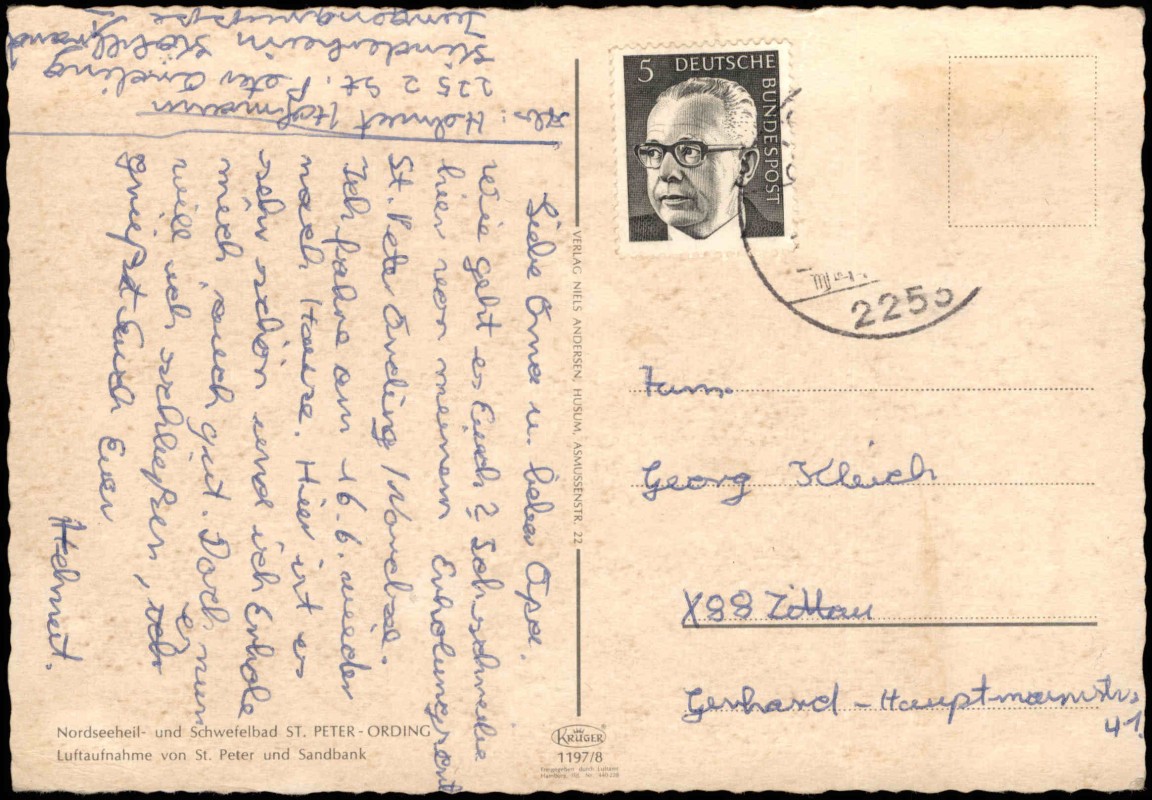 Abs: Helmut Hofmann
225 2 St. Peter Ording
Kinderheim Köhlbrand
Jungengruppe
Liebe Oma u. lieber Opa.
Wie geht es Euch? Ich schreibe
hier von meinem Erholungsort
St. Peter Ording / Nordsee.
Ich fahre am 16.6. wieder
nach Hause. Hier ist es
sehr schön und ich Erhole
mich auch gut. Doch nun
will ich schließen, es
grüßt Euch Euer
Helmut.
Nordseeheil- und Schwefelbad ST. PETER-ORDING
Luftaufnahme von St. Peter und Sandbank
VERLAG NIELS ANDERSEN, HUSUM, ASMUSSENSTR. 22
KRÜGER
1197/8
Freigegeben durch Luftamt
Hamburg
5 DEUTSCHE
BUNDESPOST
225
Fam.
Georg Kleich
X88 Zittau
Gerhard-Hauptmannstr.
41.